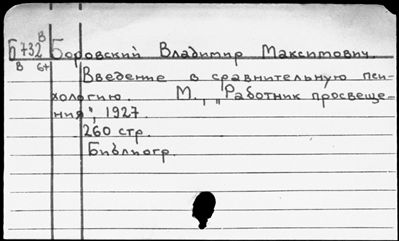 Б732 В Боровский Владимир Максимович.
В 6+
Введение в сравнительную пси-
хологию. М., „Работник просвеще-
ния", 1927.
260 стр.
Библиогр.